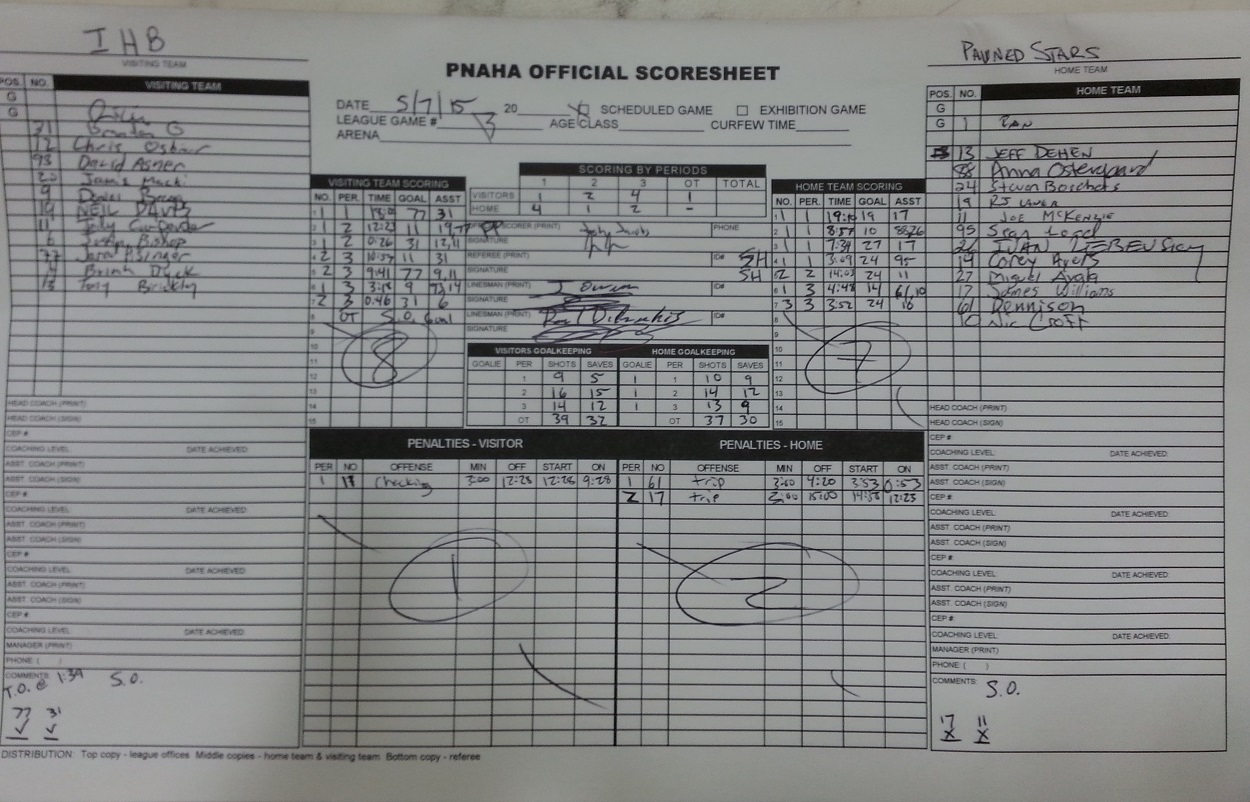 IHB
VISITING TEAM
PAWNED STARS
HOME TEAM
PNAHA OFFICIAL SCORESHEET
DATE 5/7/15 20 SCHEDULED GAME EXHIBITION GAME
LEAGUE GAME # 3 AGE CLASS CURFEW TIME
ARENA
POS. NO. VISITING TEAM
G
G
31 Brandon G
12 Chris Osbar
93 David Asmer
20
9
19 NEIL DAVIS
11
6 Bishop
77 Jared Asinger
4 Brian Dyck
13 Tony Brickley
HEAD COACH (PRINT)
HEAD COACH (SIGN)
CEP #
COACHING LEVEL DATE ACHIEVED
ASST. COACH (PRINT)
ASST. COACH (SIGN)
CEP #
COACHING LEVEL DATE ACHIEVED
ASST. COACH (PRINT)
ASST. COACH (SIGN)
CEP #
COACHING LEVEL DATE ACHIEVED
ASST. COACH (PRINT)
ASST. COACH (SIGN)
CEP #
COACHING LEVEL DATE ACHIEVED
MANAGER (PRINT)
PHONE: ( )
COMMENTS:
T.O. @ 1:39 S.O.
77 31
✓ ✓
VISITING TEAM SCORING
NO. PER. TIME GOAL ASST
1 1 77 31
2 2 12:23 11 19
3 2 0:26 31 12,11
4 3 10:57 11 31
5 3 9:41 77 9,11
6 3 3:18 9 93,14
7 3 0:46 31 6
8 OT S.O. Goal
9
10
11
12
13
14
15
8
SCORING BY PERIODS
1 2 3 OT TOTAL
VISITORS 1 2 4 1
HOME 4 1 2 -
SCORER (PRINT) PHONE
SIGNATURE
REFEREE (PRINT) ID#
SIGNATURE
LINESMAN (PRINT) J Owen ID#
SIGNATURE
LINESMAN (PRINT) ID#
SIGNATURE
SH
SH
VISITORS GOALKEEPING HOME GOALKEEPING
GOALIE PER SHOTS SAVES GOALIE PER SHOTS SAVES
1 9 5 1 1 10 9
2 16 15 1 2 14 12
3 14 12 1 3 13 9
OT 39 32 OT 37 30
HOME TEAM SCORING
NO. PER. TIME GOAL ASST
1 1 19:10 19 17
2 1 8:57 10 88,26
3 1 7:34 27 17
4 1 3:09 24 95
5 2 14:03 24 11
6 3 4:48 14 61,10
7 3 3:52 24 10
8
9
10
11
12
13
14
15
7
POS. NO. HOME TEAM
G
G 1 ZAN
13 JEFF DEHEN
88 Anna Ostergaard
24 Steven Borchers
19 RJ LAUER
11 JOE McKENZIE
95 Sean Legel
26 IVAN
14 Corey Ayers
27 Miguel Ayala
17 James Williams
61 Dennison
10 Nic Groff
HEAD COACH (PRINT)
HEAD COACH (SIGN)
CEP #
COACHING LEVEL DATE ACHIEVED
ASST. COACH (PRINT)
ASST. COACH (SIGN)
CEP #
COACHING LEVEL DATE ACHIEVED
ASST. COACH (PRINT)
ASST. COACH (SIGN)
CEP #
COACHING LEVEL DATE ACHIEVED
ASST. COACH (PRINT)
ASST. COACH (SIGN)
CEP #
COACHING LEVEL DATE ACHIEVED
MANAGER (PRINT)
PHONE: ( )
COMMENTS:
S.O.
17 11
X X
PENALTIES - VISITOR PENALTIES - HOME
PER NO OFFENSE MIN OFF START ON PER NO OFFENSE MIN OFF START ON
1 11 Checking 3:00 12:28 12:28 9:28 1 61 trip 3:00 4:20 3:53 0:53
2 17 trip 3:00 15:00 14:58 12:23
1
2
DISTRIBUTION: Top copy - league offices Middle copies - home team & visiting team Bottom copy - referee